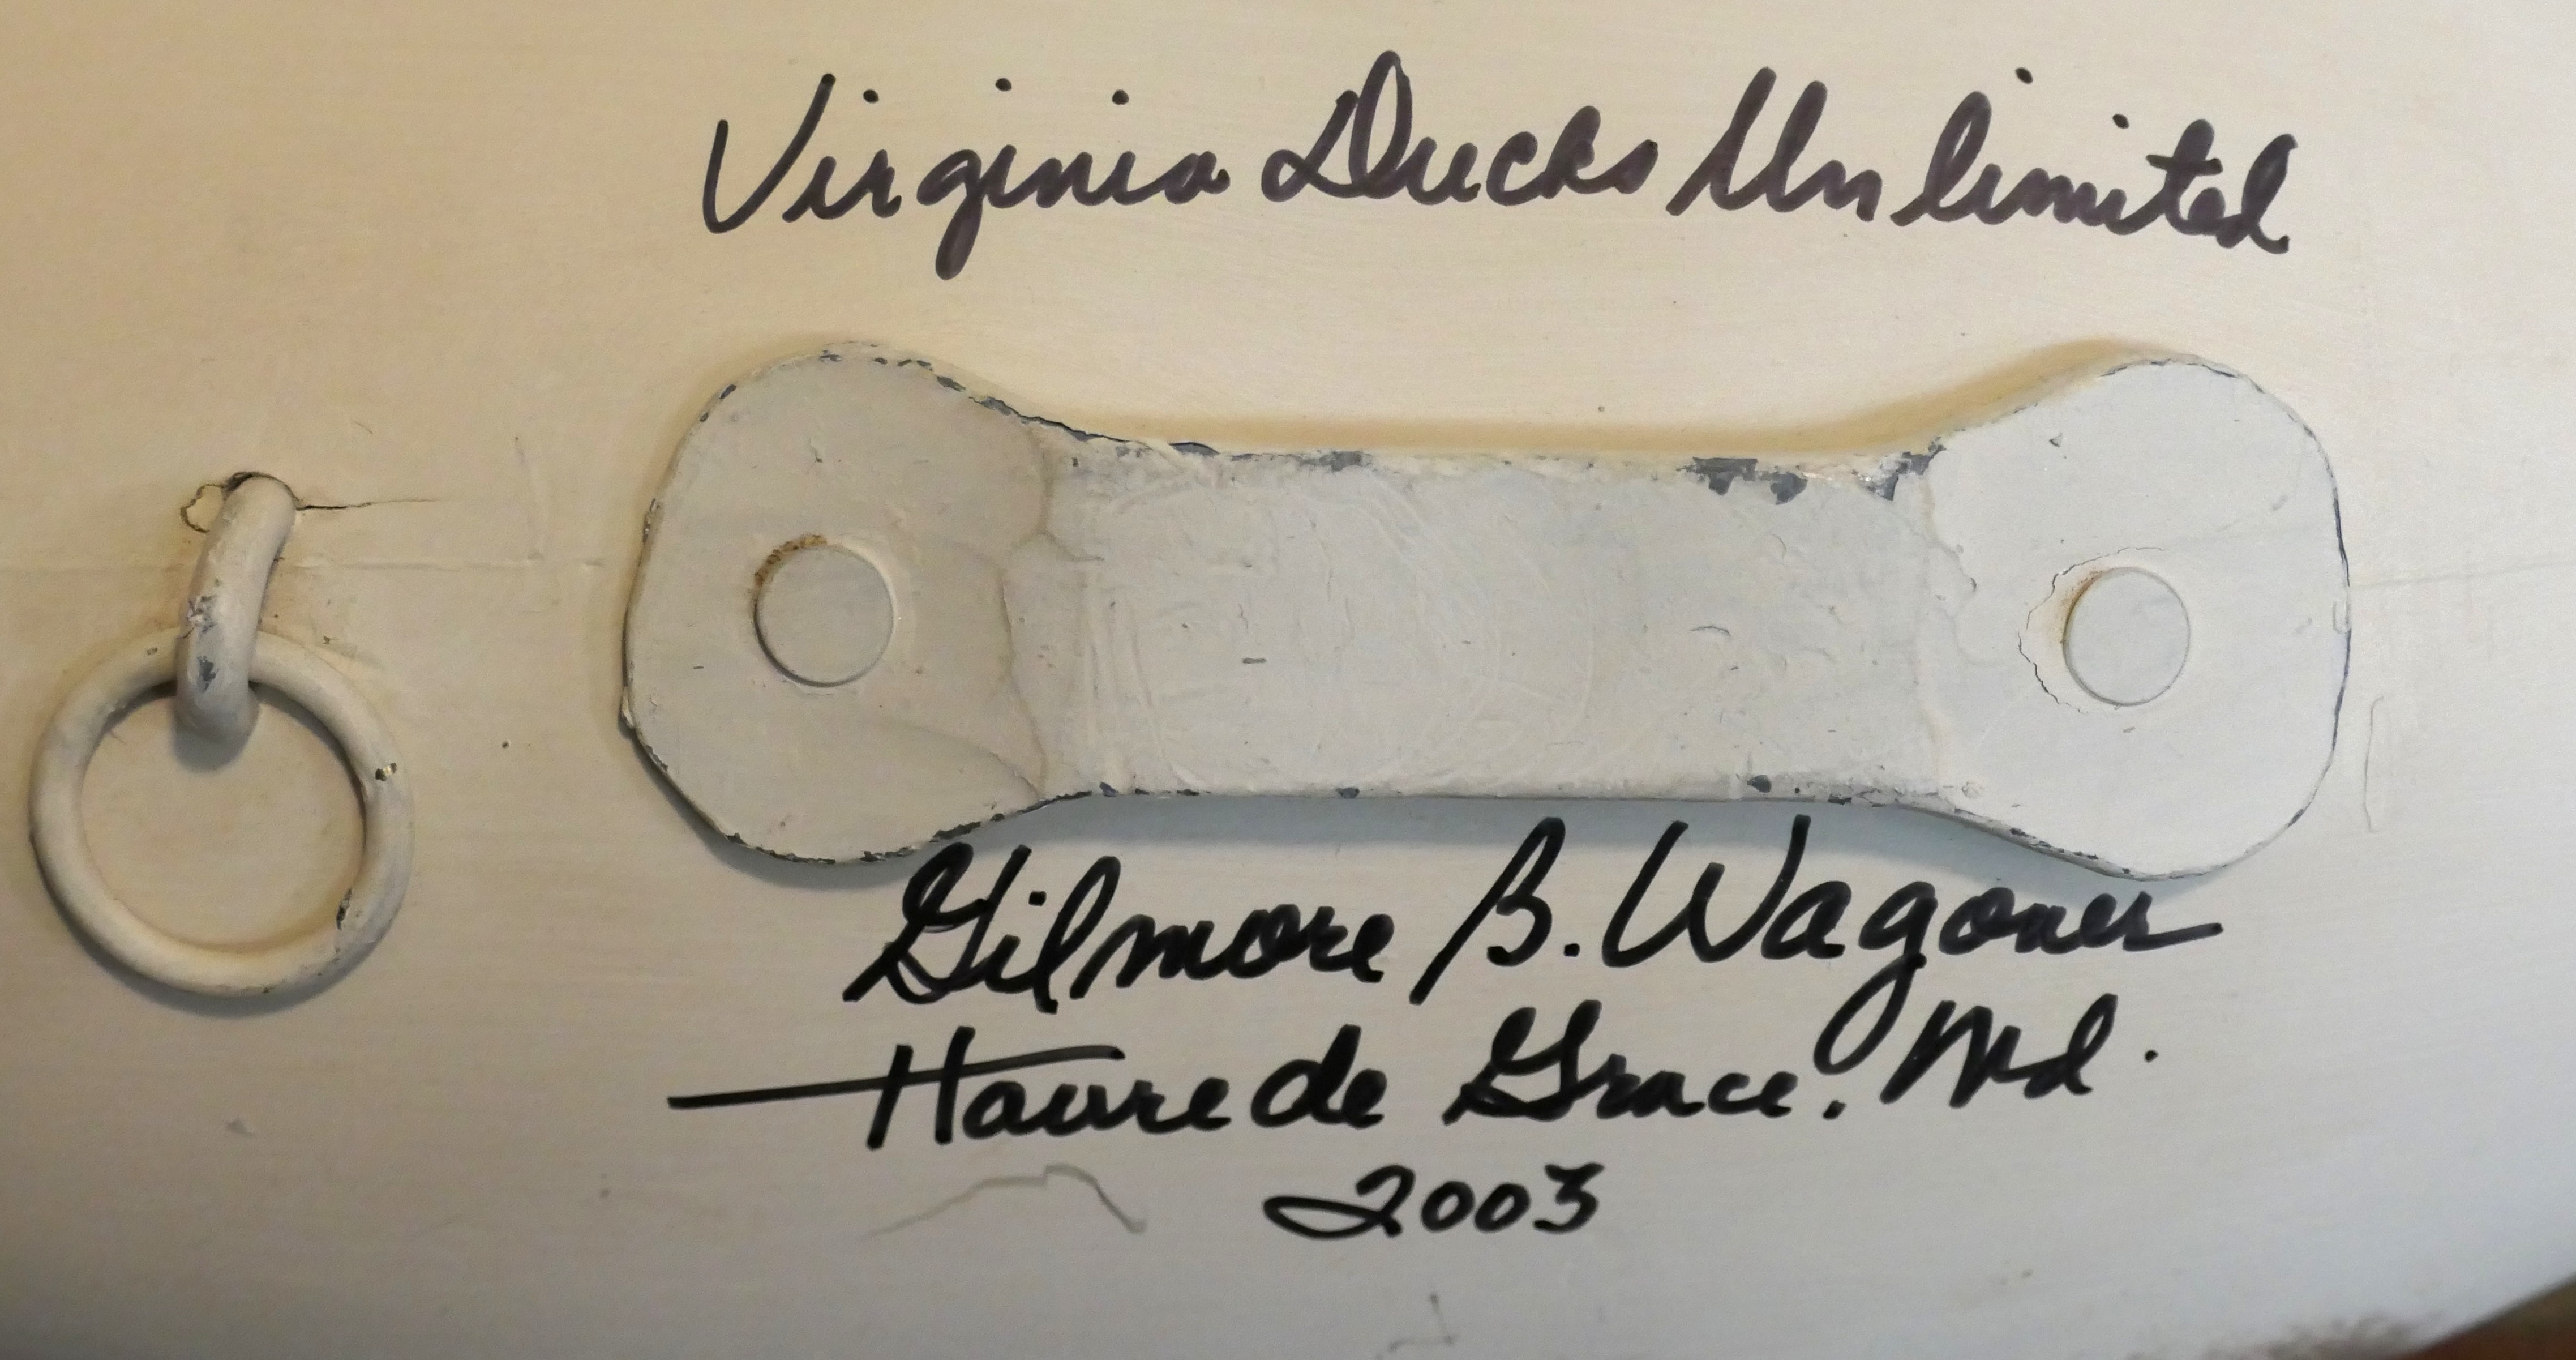 Virginia Ducks Unlimited
Gilmore B. Wagoner
Havre de Grace, Md.
2003